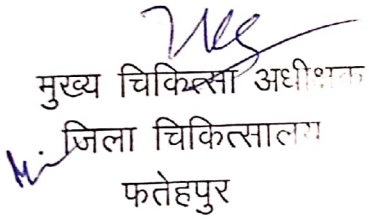 मुख्य चिकित्सा अधीक्षक
जिला चिकित्सालय
फतेहपुर